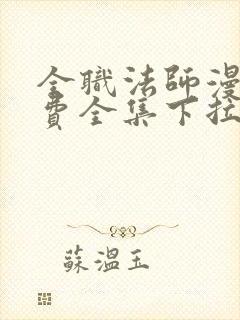 全職法師漫
費全集下拉
蘇溫玉